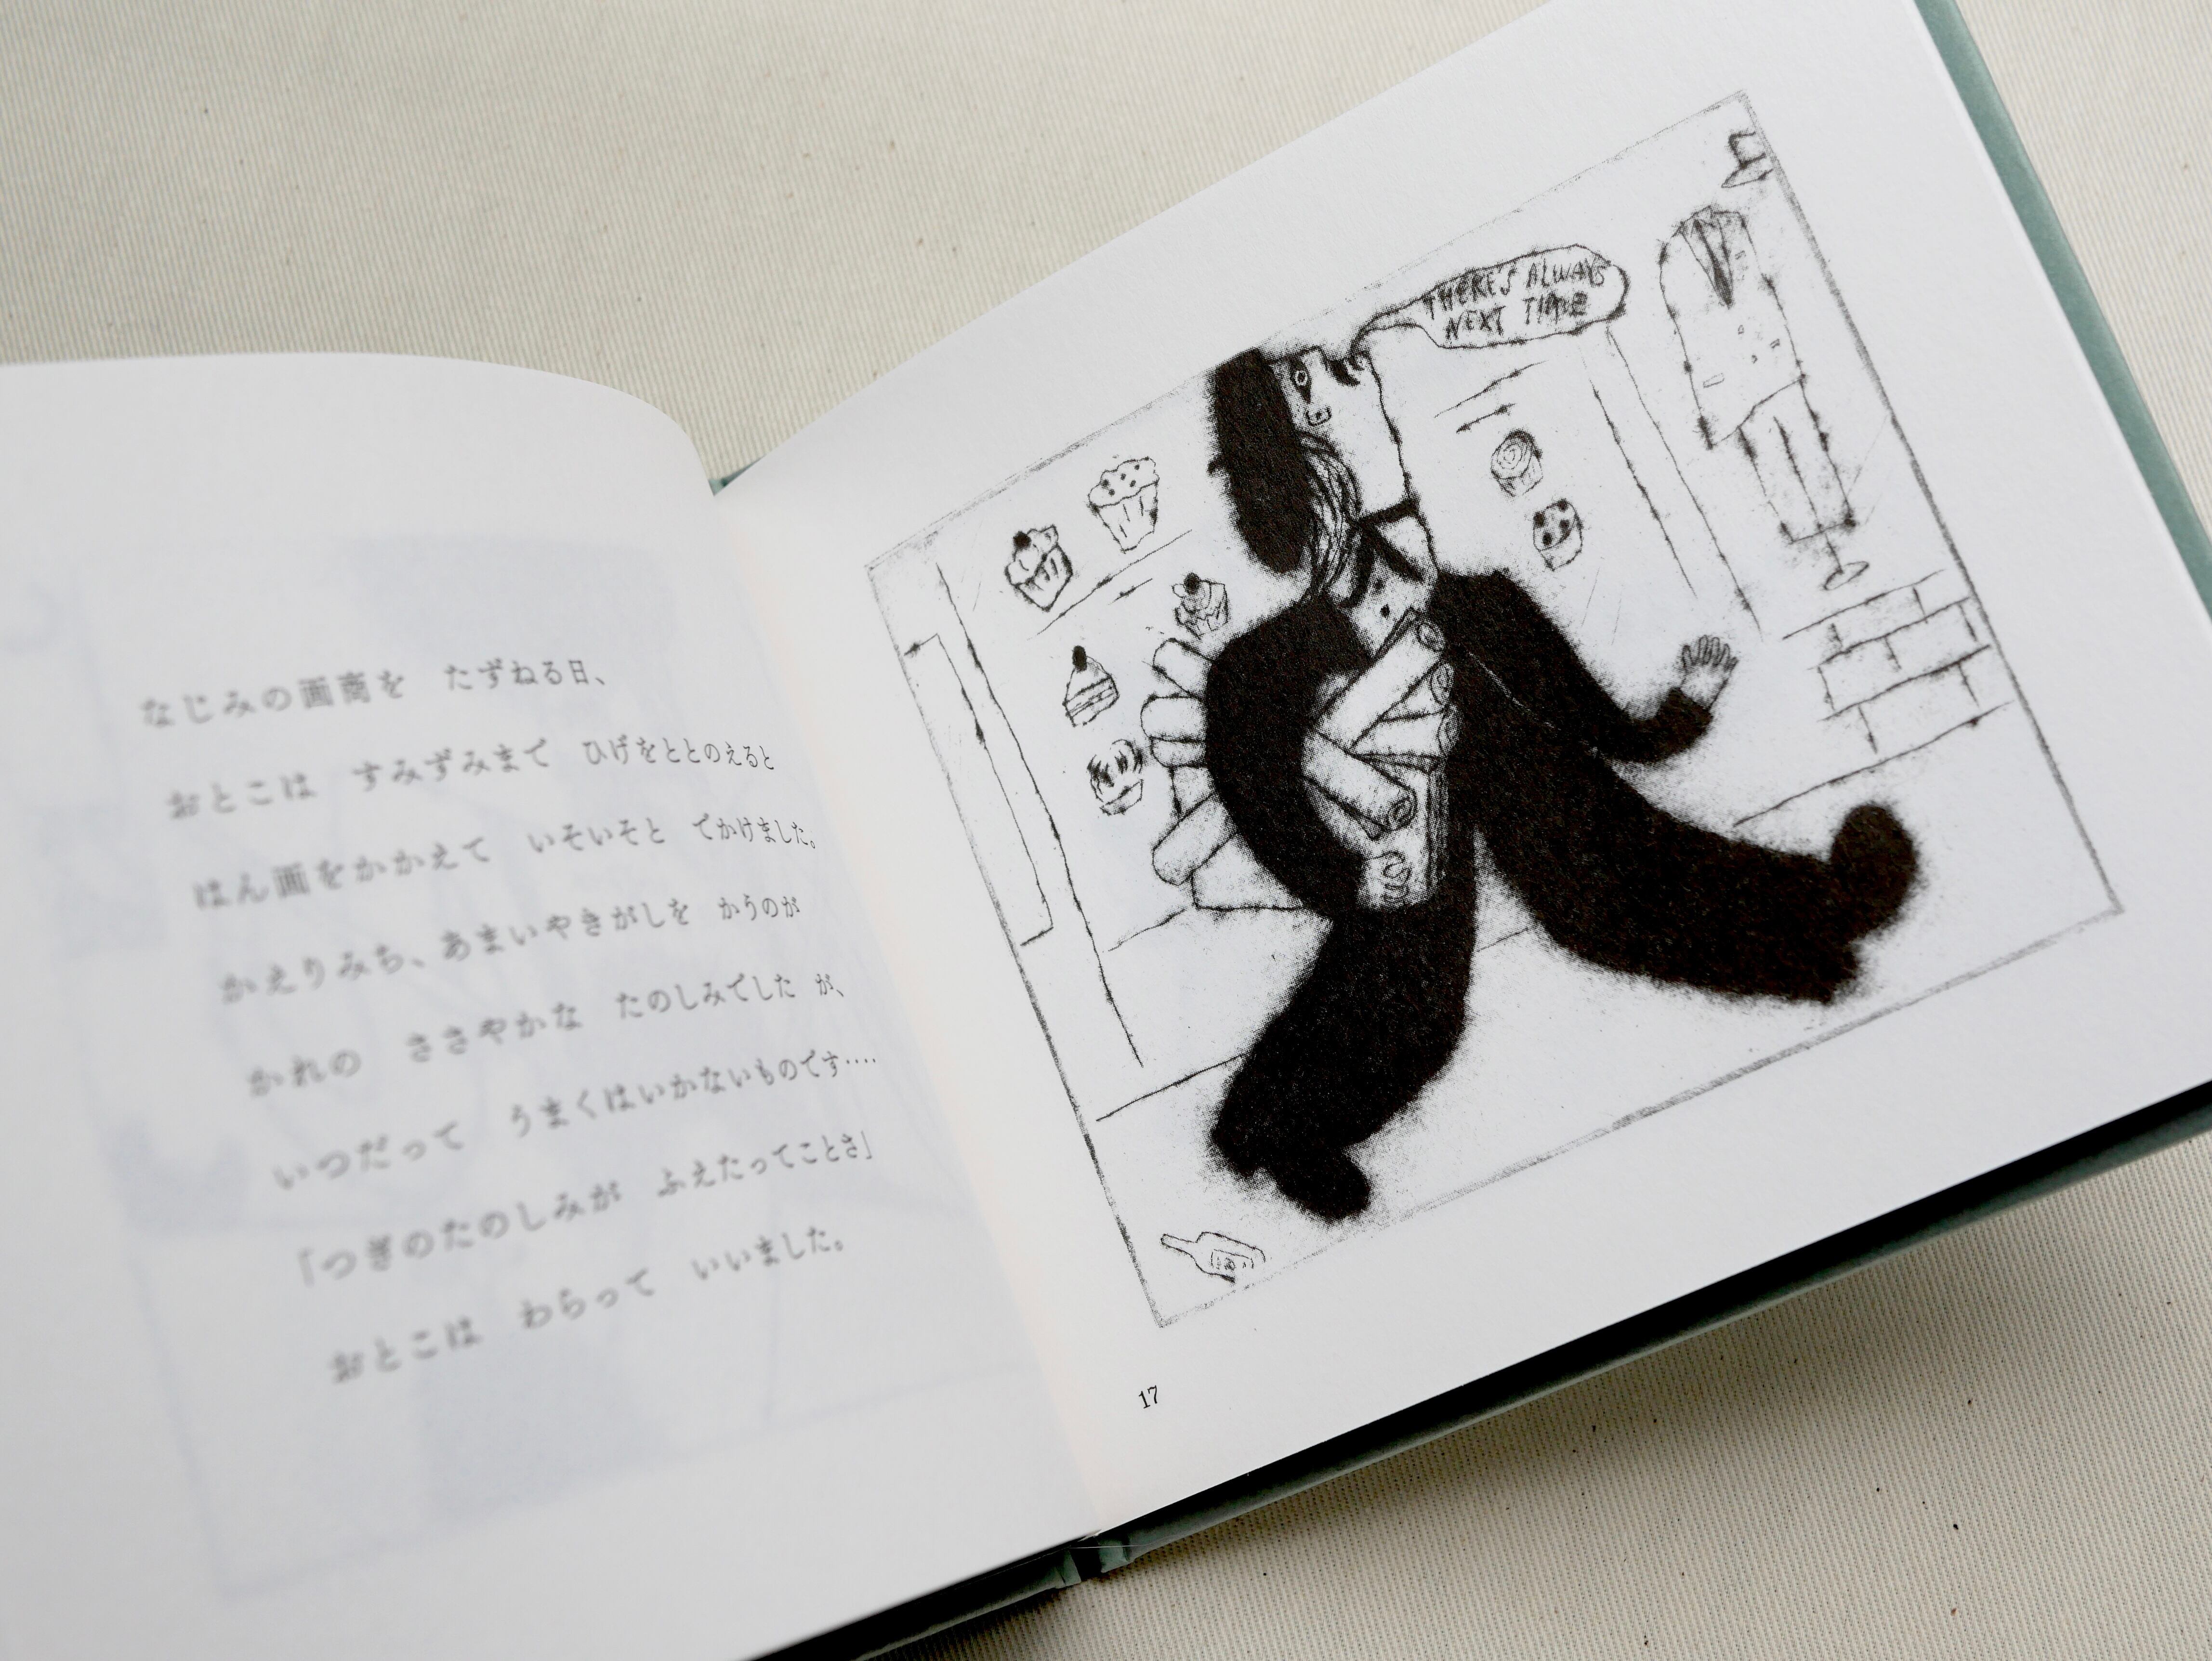 なじみの画商を　たずねる日、
おとこは　すみずみまで　ひげをととのえると
はん画をかかえて　いそいそと　でかけました。
かえりみち、あまいやきがしを　かうのが
かれの　ささやかな　たのしみでした　が、
いつだって　うまくはいかないものです‥‥
「つぎのたのしみが　ふえたってことさ」
おとこは　わらって　いいました。
THERE'S ALWAYS
NEXT TIME
17